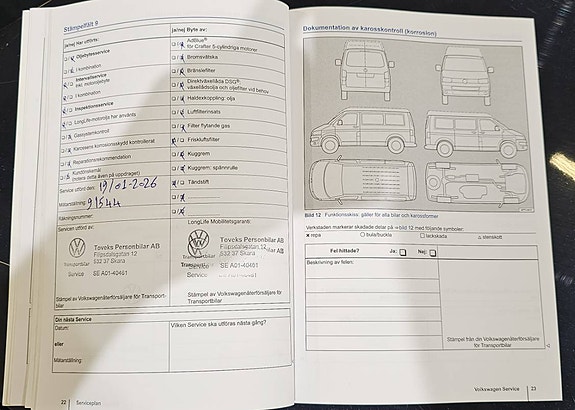 Stämpelfält 9
(ja/nej) Har utförts:
Oljebytesservice
I kombination
Intervallservice
Inkl. motoroljebyte
I kombination
Inspektionsservice
LongLife-motorolja har använts
Gassystemkontroll
Karossens korrosionsskydd kontrollerat
Reparationsrekommendation
Kundönskemål
(notera detta även på uppdraget)
Service utförd den: 19/01-2026
Mätarställning: 91544
Räkningsnummer:
Servicen utförd av:
Toveks Personbilar AB
Filipsdalsgatan 12
532 37 Skara
Transportbilar
Service SE A01-40461
Stämpel av Volkswagenåterförsäljare för Transport-
bilar
(ja/nej) Byte av:
AdBlue®
för Crafter 5-cylindriga motorer
Bromsvätska
Bränslefilter
Direktväxellåda DSG®:
växellådsolja och oljefilter vid behov
Haldexkoppling: olja
Luftfilterinsats
Filter flytande gas
Friskluftsfilter
Kuggrem
Kuggrem: spännrulle
Tändstift
LongLife Mobilitetsgaranti:
Toveks Personbilar AB
Filipsdalsgatan 12
532 37 Skara
Transportbilar
Service SE A01-40461
Stämpel av Volkswagenåterförsäljare för Transport-
bilar
Din nästa Service
Datum:
eller
Mätarställning:
Vilken Service ska utföras nästa gång?
22 Serviceplan
Dokumentation av karosskontroll (korrosion)
Bild 12 Funktionsskiss: gäller för alla bilar och karossformer
Verkstaden markerar skadade delar på ⇒bild 12 med följande symboler:
x repa
○ bula/buckla
□ lackskada
△ stenskott
Fel hittade? Ja: Nej:
Beskrivning av felen:
Stämpel från din Volkswagenåterförsäljare
för Transportbilar
Volkswagen Service 23